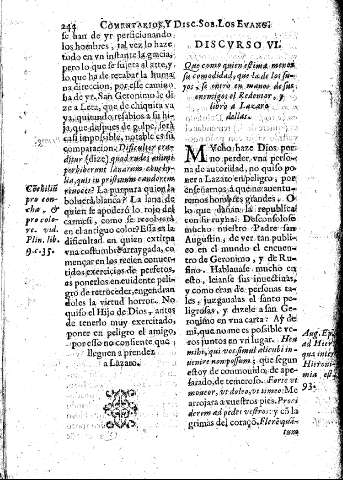 244 COMENTARIOS, Y DISC. SOB. LOS EVANG.
se han de yr perficionando
los hombres, tal vez lo haze
todo en vn instante la gracia,
pero lo que se sujeta al arte, y
lo que ha de recabar la huma
na direccion, por esse camino
ha de yr. San Geronimo le di
ze a Leta, que de chiquita va
ya, quiriendo, resabios a su hi-
ja, que despues de golpe, será
casi impossible, notable es su
comparacion: Difficulter era-
ditur (dize) quod rudes animi
perbiberunt lanarum conchy-
lia, quis in pristinum candorem
reuocet? La purpura quien la
boluerá blanca? La lana, de
quien se apoderó lo rojo del
carmesi, como se resoluerá
en el antiguo color? Essa es la
dificultad, en quien extirpa
vna costumbre arraygada, co
mençar en los recien conuer-
tidos exercicios de perfetos,
es ponerlos en euidente peli
gro de retroceder, engendran
doles la virtud horror. No
quiso el Hijo de Dios, antes
de tenerlo muy exercitado,
poner en peligro al amigo,
por esso no consiente que
lleguen a prender
a Lazaro.
Corbilii
pro con-
cha, &
pro colo-
re. vid.
Plin. lib.
9. c. 35.
DISCVRSO VI.
Que como quien estima menos
su comodidad, que la de los su-
yos, se entró en manos de sus
enemigos el Redentor, y
libró a Lazaro
dellas.
MVcho haze Dios por
no perder vna perso-
na de autoridad, no quiso po
ner a Lazaro en peligro; por
enseñarnos a que no auentu-
remos hombres grandes. O
lo que dañan la republica
con su ruyna! Desconsolose
mucho nuestro Padre san
Augustin, de ver tan public
co en el mundo el encuen-
tro de Geronimo, y de Ru-
fino. Hablauase mucho en
esto, leianse sus inuectiuas,
y como eran de personas ta-
les, juzgaualas el santo peli-
grosas, y dizele a san Ge-
ronimo en vna carta: Ay de
mi, que no me es possible ve-
ros juntos en vn lugar. Hea
mihi, qui vos simul alicubi in-
uenire non possum; que segun
estoy de conmouido, de ape-
sarado, de temeroso. Forte vt
moueor, vt doleo, vt timeo: Me
arrojara a vuestros pies. Proci
derem ad pedes vestros: y cõ la
grimas del coraçõ. Flerẽ qua-
tum
Aug. Ep.
ad Hier
qua inter
Hieroni-
mia est
93.